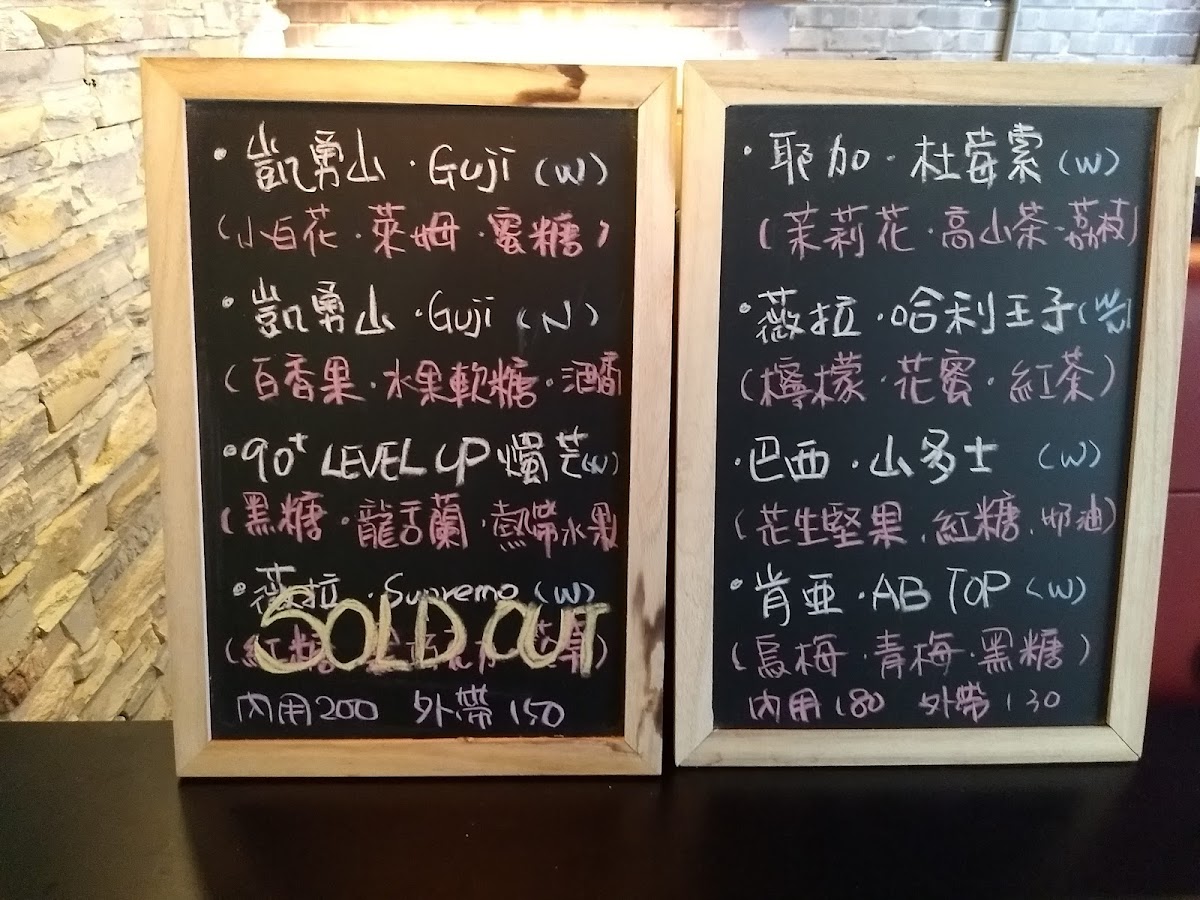 • 凱勇山 · Guji (W)
(小白花 · 萊姆 · 蜜糖)
• 凱勇山 · Guji (N)
(百香果 · 水果軟糖 · 酒香
• 90+ LEVEL UP 燭芒 (W)
(黑糖 · 龍舌蘭 · 熱帶水果
• 薇拉 · Supremo (W)
SOLD OUT
(紅糖
內用200 外帶150
• 耶加 · 杜莓索 (W)
(茉莉花 · 高山茶 · 荔枝)
• 薇拉 · 哈利王子 (
(檸檬 · 花蜜 · 紅茶)
· 巴西 · 山多士 (W)
(花生堅果 . 紅糖 . 奶油)
• 肯亞 · AB TOP (W)
(烏梅 · 青梅 · 黑糖)
內用180 外帶130